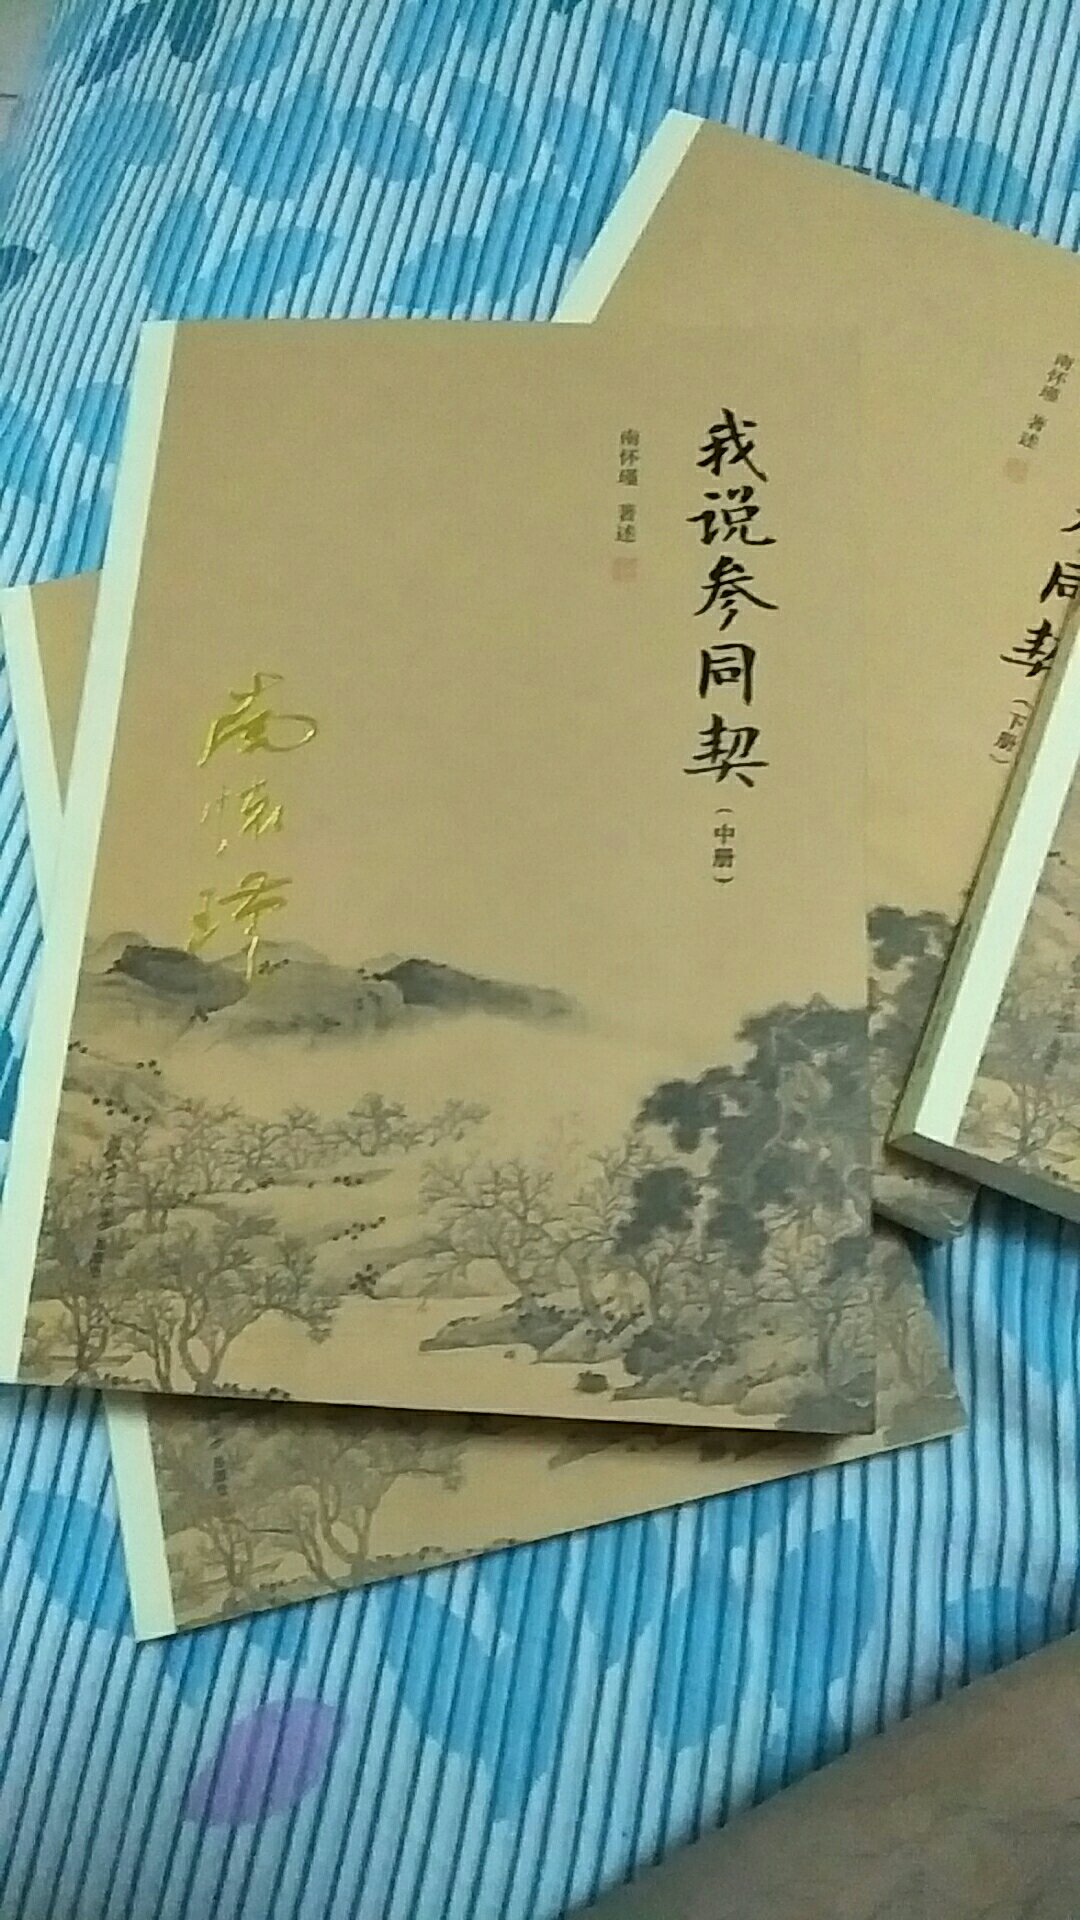 我说参同契
（中册）
南怀瑾 著述
南怀瑾
南怀瑾 著述
同契
（下册）